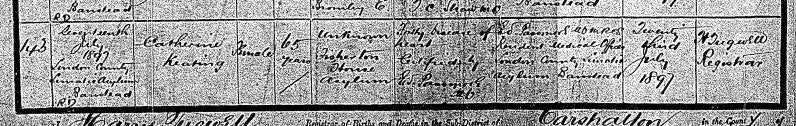 Banstead
R.D.
Bromley
Banstead
143
Seventeenth
July
1897
London County
Lunatic Asylum
Banstead
R.D.
Catherine
Keating
Female
65
years
Unknown
Fisherton
House
Asylum
Fatty disease of
heart
Certified by
M.B.
Resident Medical Officer
London County Lunatic
Asylum Banstead
Twenty
third
July
1897
H Tugwell
Registrar
Tugwell
Registrar of Births and Deaths in the Sub-District of
Carshalton
in the County of